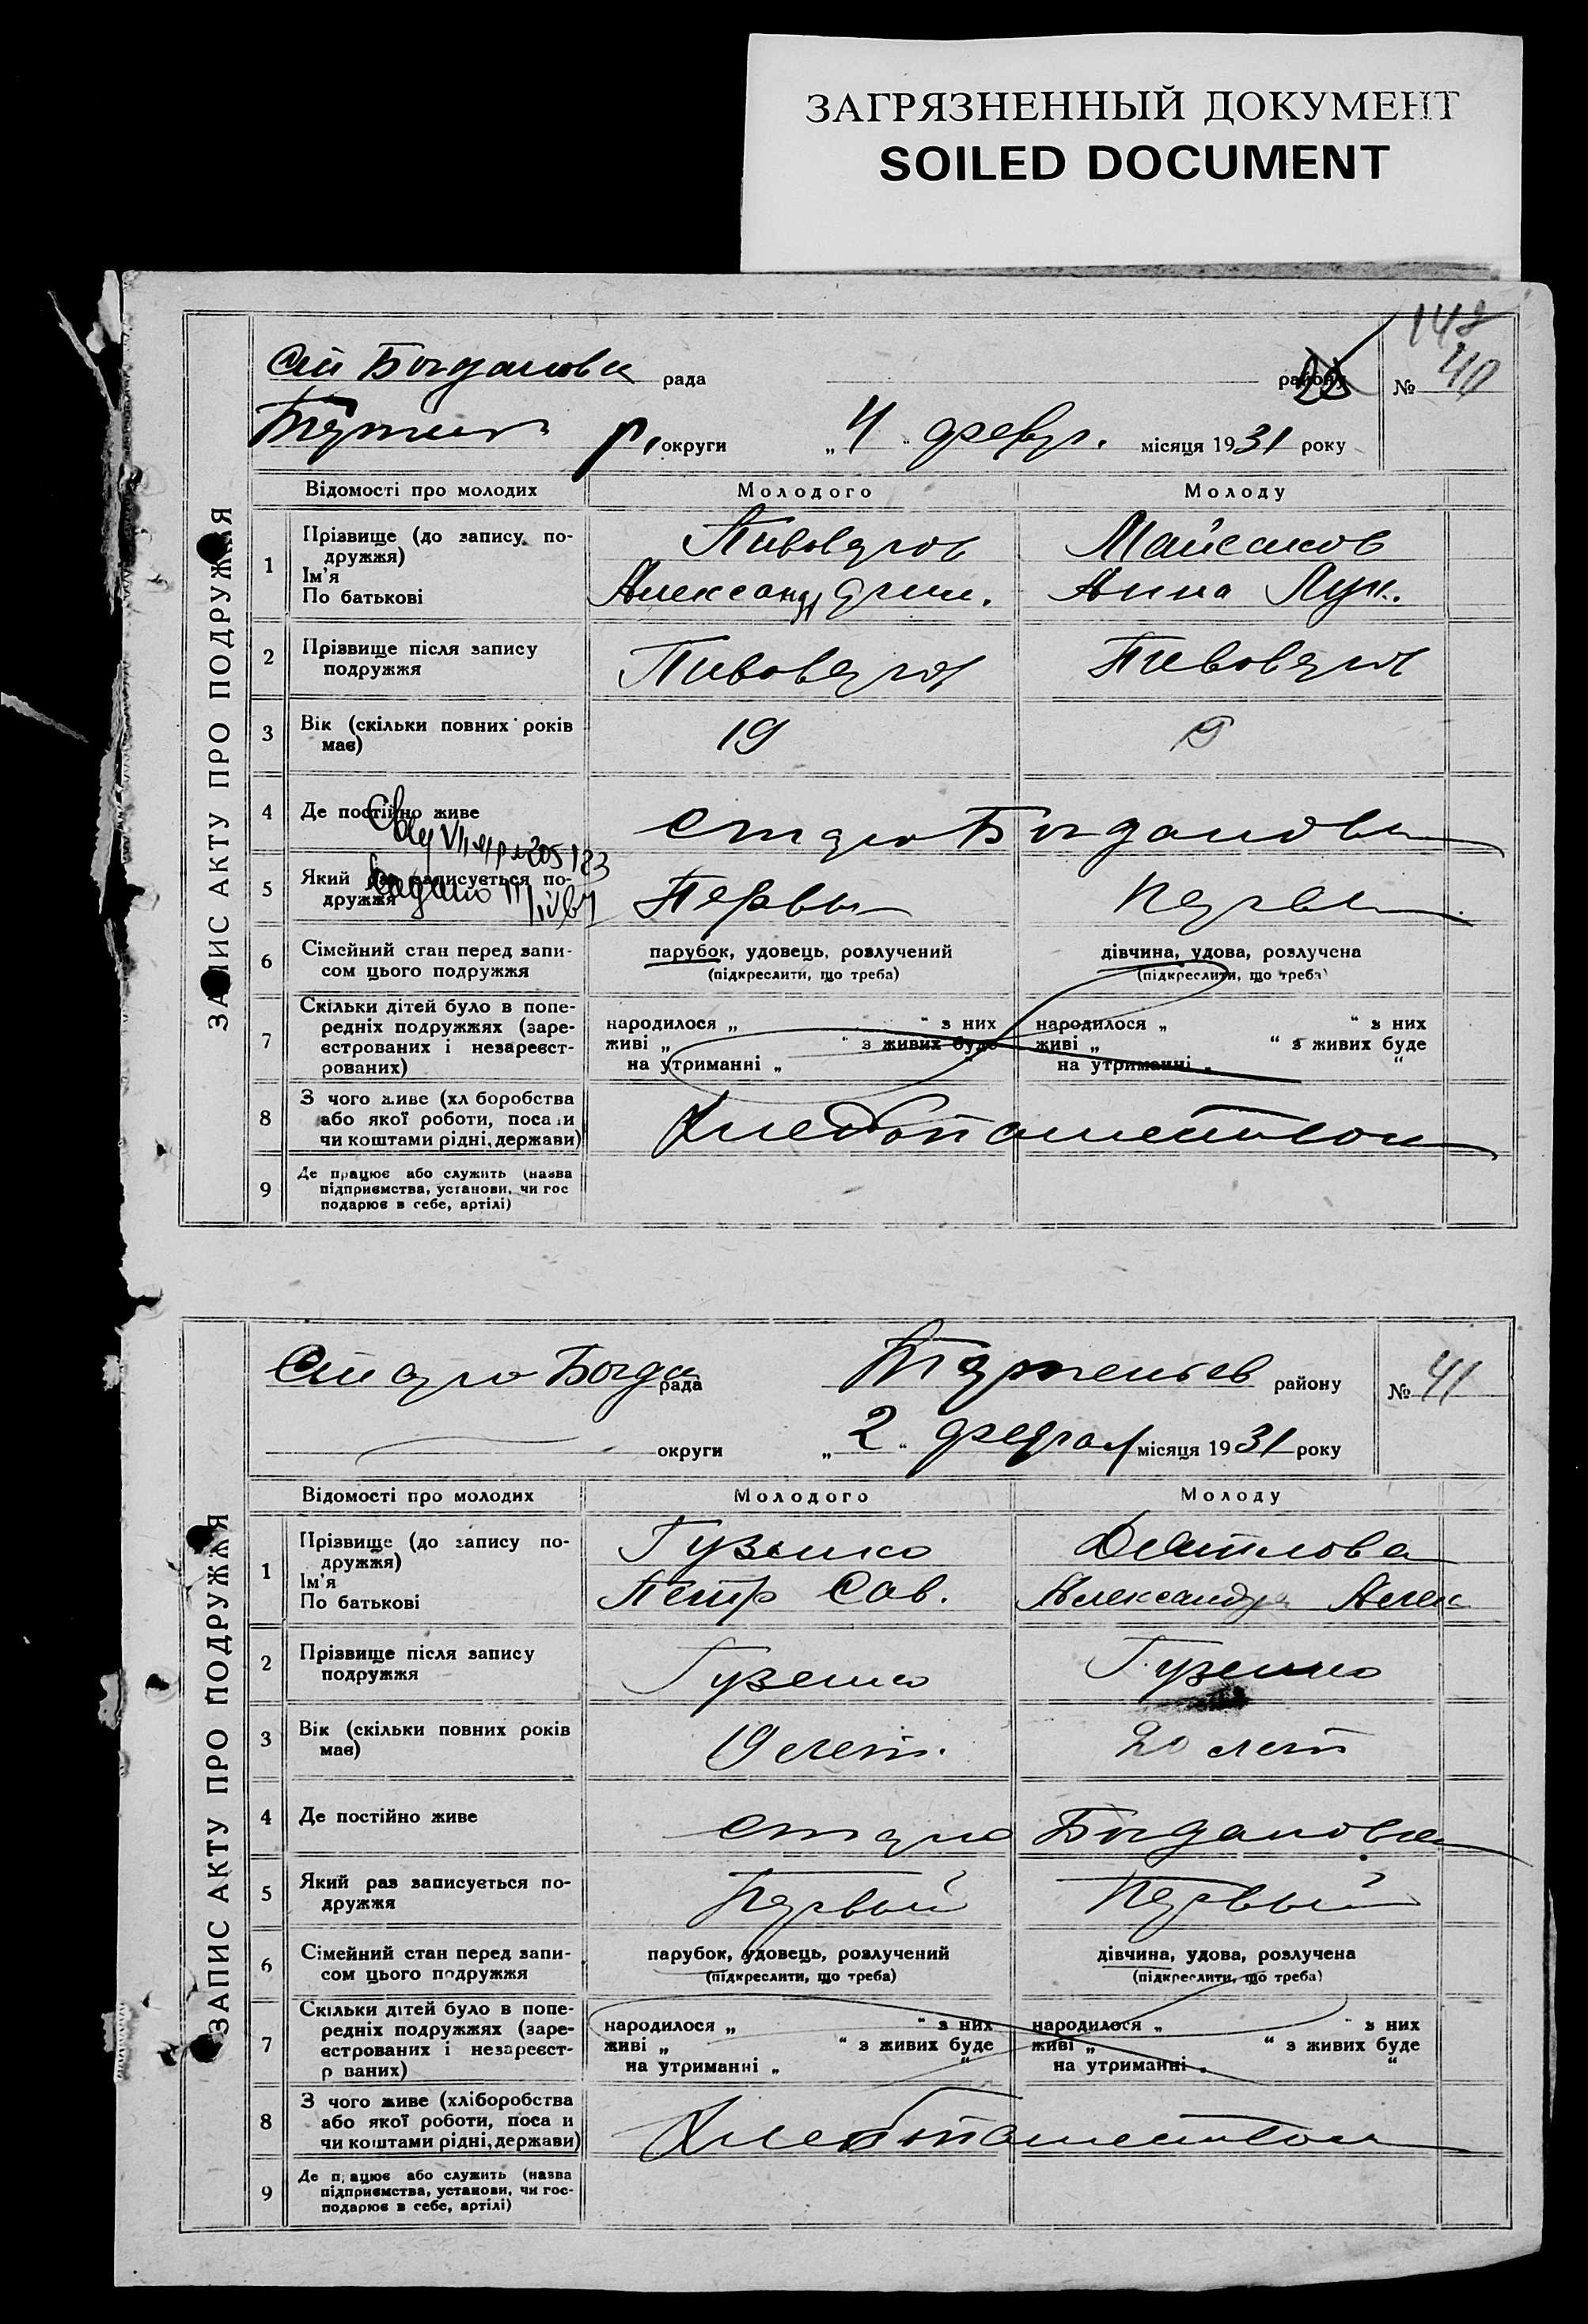 ЗАГРЯЗНЕННЫЙ ДОКУМЕНТ
SOILED DOCUMENT
148
Ст Богдановка рада району № 40
р. округи „4“ февр. місяця 1931 року
ЗАПИС АКТУ ПРО ПОДРУЖЖЯ
Відомості про молодих Молодого Молоду
1 Прізвище (до запису по-
дружжя)
Ім'я
По батькові
Пивоваров
Александр
Анна Лук.
2 Прізвище після запису
подружжя
Пивоваров Пивоваров
3 Вік (скільки повних років
має)
19 19
4 Де постійно живе старо Богдановка
5 Який раз записується по-
дружжя
Первы Первы
6 Сімейний стан перед запи-
сом цього подружжя
парубок, удовець, розлучений
(підкреслити, що треба)
дівчина, удова, розлучена
(підкреслити, що треба)
7 Скільки дітей було в попе-
редніх подружжях (заре-
єстрованих і незареєст-
рованих)
народилося „ “ з них
живі „ “ з живих буде
на утриманні „ “
народилося „ “ з них
живі „ “ з живих буде
на утриманні „ “
8 З чого живе (хл боробства
або якої роботи, поса и
чи коштами рідні, держави)
Хлебопашеством
9 Де працює або служить (назва
підприємства, установи, чи гос
подарює в себе, артілі)
Старо Богда рада району № 41
округи „2“ феврал місяця 1931 року
ЗАПИС АКТУ ПРО ПОДРУЖЖЯ
Відомості про молодих Молодого Молоду
1 Прізвище (до запису по-
дружжя)
Ім'я
По батькові
Гузенко Дятлова
Петр Сав. Александра Алек
2 Прізвище після запису
подружжя
Гузенко Гузенко
3 Вік (скільки повних років
має)
19 лет. 20 лет
4 Де постійно живе старо Богдановка
5 Який раз записується по-
дружжя
Первый Первый
6 Сімейний стан перед запи-
сом цього подружжя
парубок, удовець, розлучений
(підкреслити, що треба)
дівчина, удова, розлучена
(підкреслити, що треба)
7 Скільки дітей було в попе-
редніх подружжях (заре-
єстрованих і незареєст-
р ваних)
народилося „ “ з них
живі „ “ з живих буде
на утриманні „ “
народилося „ “ з них
живі „ “ з живих буде
на утриманні „ “
8 З чого живе (хліборобства
або якої роботи, поса и
чи коштами рідні, держави)
Хлебопашеством
9 Де п ацює або служить (назва
підприємства, установи, чи гос-
подарює в себе, артілі)